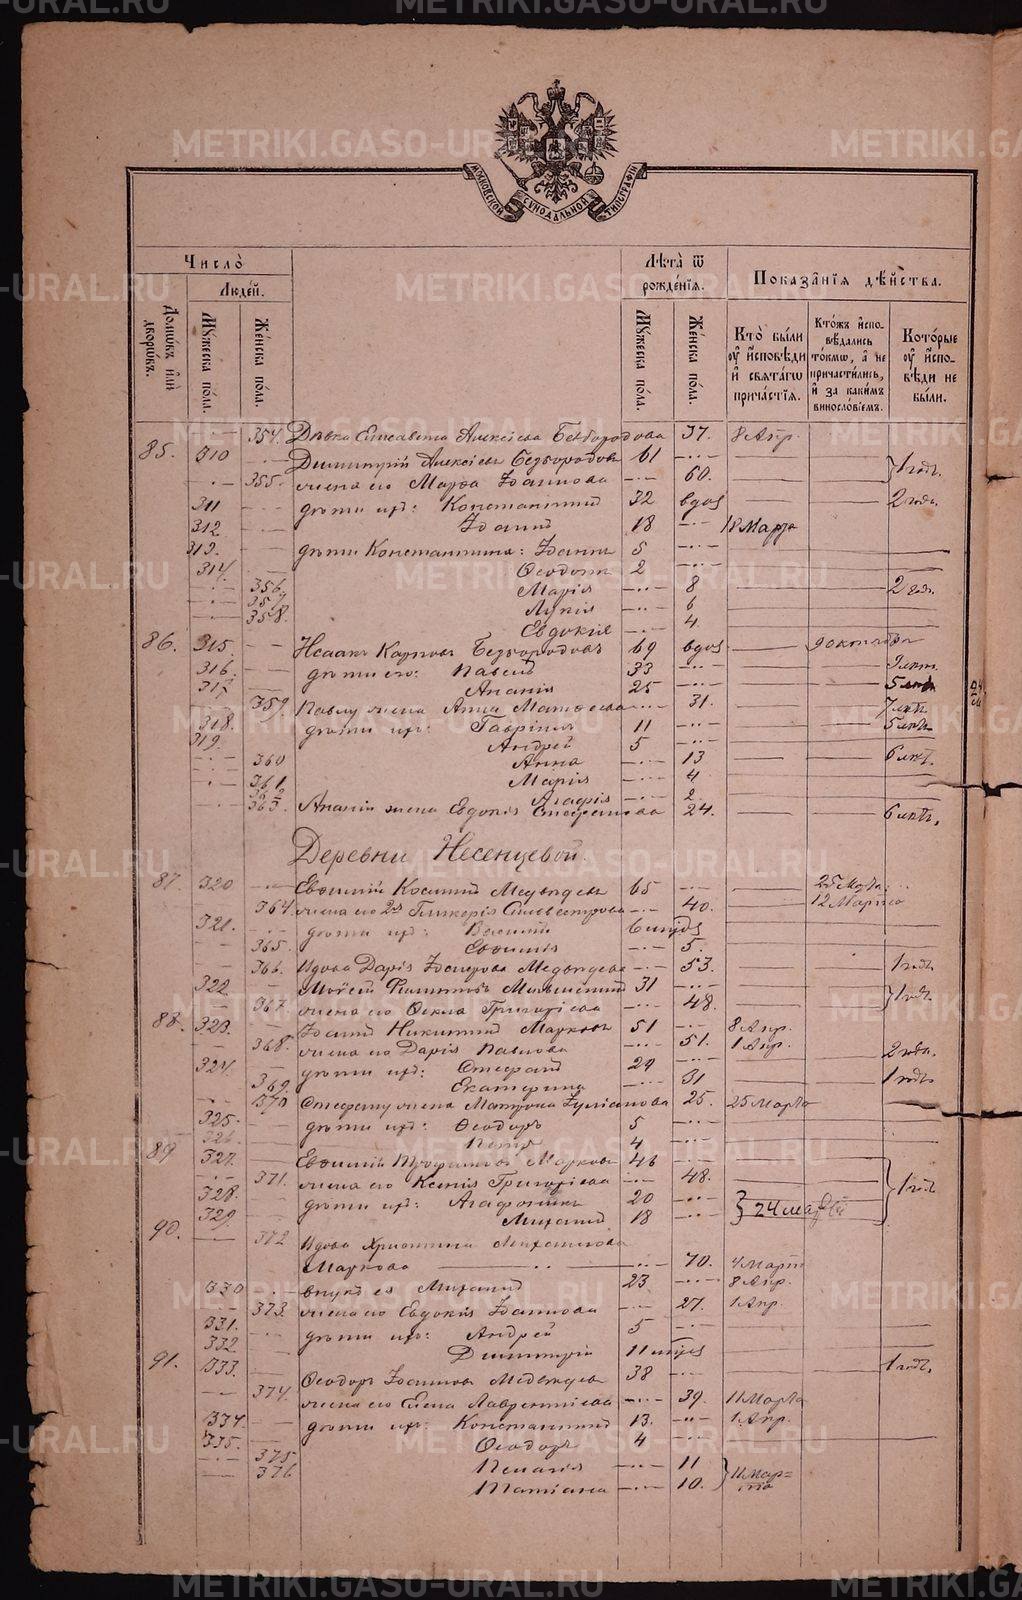 METRIKI.GASO-URAL.RU
МОСКОВСКОЙ СѴНОДАЛЬНОЙ ТИПОГРАФІИ
Число̀
Людей.
Домѡвъ илѝ дворѡвъ.
Мꙋжеска пола.
Женска пола.
Лѣта̀ ѿ рожденїѧ.
Мꙋжеска пола.
Женска пола.
Показа̑нїѧ дѣйства.
Кто̀ были ᲂу҆ исповѣди и҆ свѧтагѡ причастїѧ.
Ктожъ исповѣдались токмѡ, а҆ не причастились, и҆ за какимъ винословїемъ.
Которые ᲂу҆ исповѣди не были.
354. Дѣвка Елисавета Алексіева Безбородова 37. 8 Апр.
85. 310 Димитрій Алексіевъ Безбородовъ 61 } 1 годъ.
355. жена его Марѳа Іоаннова 60.
311 дѣти ихъ: Константинъ 32 вдов 2 года.
312. Іоаннъ 18 18 Марта
313. дѣти Константина: Іоаннъ 5
314. Ѳеодоръ 2
356. Марія 8 2 года.
357 Лукія 6
358. Евдокія 4.
86. 315. Исаакъ Карповъ Безбородовъ 69 вдов 9 октября
316. дѣти его: Павелъ 33 9 лѣт.
317 Ананія 25 5 лѣтъ
359. Павлу жена Анна Матѳеева 31. 7 лѣтъ
318. дѣти ихъ: Гавріилъ 11 5 лѣтъ
319. Андрей 5
360 Анна 13 6 лѣт.
361 Марія 4
362 Агафія 2.
363. Ананіи жена Евдокія Стефанова 24. 6 лѣтъ.
Деревни Несенцевой.
87. 320 Евѳимій Косминъ Медвѣдевъ 65 25 Марта.
364. жена его 2я Гликерія Сильвестрова 40. 12 Марта
321. дѣти ихъ: Василій 6
365. Евѳимія 5.
366. Вдова Дарія Медвѣдева 53. 1 годъ
322. Моѵсей Филиповъ 31 } 1 годъ.
367. жена его Ѳекла Григоріева 48.
88. 323. Іоаннъ Никитинъ Марковъ 51 8 Апр.
368. жена его Дарія Павлова 51. 1 Апр.
324. дѣти ихъ: Стефанъ 29 2 года.
369. Екатерина 31 1 годъ
370 Стефану жена Матрона Іуліанова 25. 25 Марта
325. дѣти ихъ: Ѳеодоръ 5
326. Петръ 4
89 327. Евѳимій Трофимовъ Марковъ 46 } 1 годъ
371. жена его Ксенія Григоріева 48.
328. дѣти ихъ: Агафоникъ 20 } 24 марта
329. Михаилъ 18
90. 372 Вдова Христина
Маркова 70. 4 Март
330 внукъ ея Михаилъ 23 8 Апр.
373. жена его Евдокія Іоаннова 27. 1 Апр.
331. дѣти ихъ: Андрей 5
332 Димитрій 11
91. 333. Ѳеодоръ Іоанновъ Медвѣдевъ 38 1 годъ.
374. жена его Елена Лаврентіева 39. 11 Марта
334. дѣти ихъ: Константинъ 13. 1 Апр.
335. Ѳеодоръ 4
375. Пелагія 11 } 11 Мар=
376 Татіана 10. та